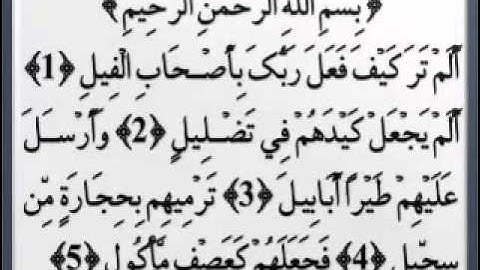 ﴿بِسْمِ اللَّهِ الرَّحْمَنِ الرَّحِيمِ﴾
أَلَمْ تَرَ كَيْفَ فَعَلَ رَبُّكَ بِأَصْحَابِ الْفِيلِ ﴿1﴾
أَلَمْ يَجْعَلْ كَيْدَهُمْ فِي تَضْلِيلٍ ﴿2﴾ وَأَرْسَلَ
عَلَيْهِمْ طَيْرًا أَبَابِيلَ ﴿3﴾ تَرْمِيهِم بِحِجَارَةٍ مِّن
سِجِّيلٍ ﴿4﴾ فَجَعَلَهُمْ كَعَصْفٍ مَّأْكُولٍ ﴿5﴾